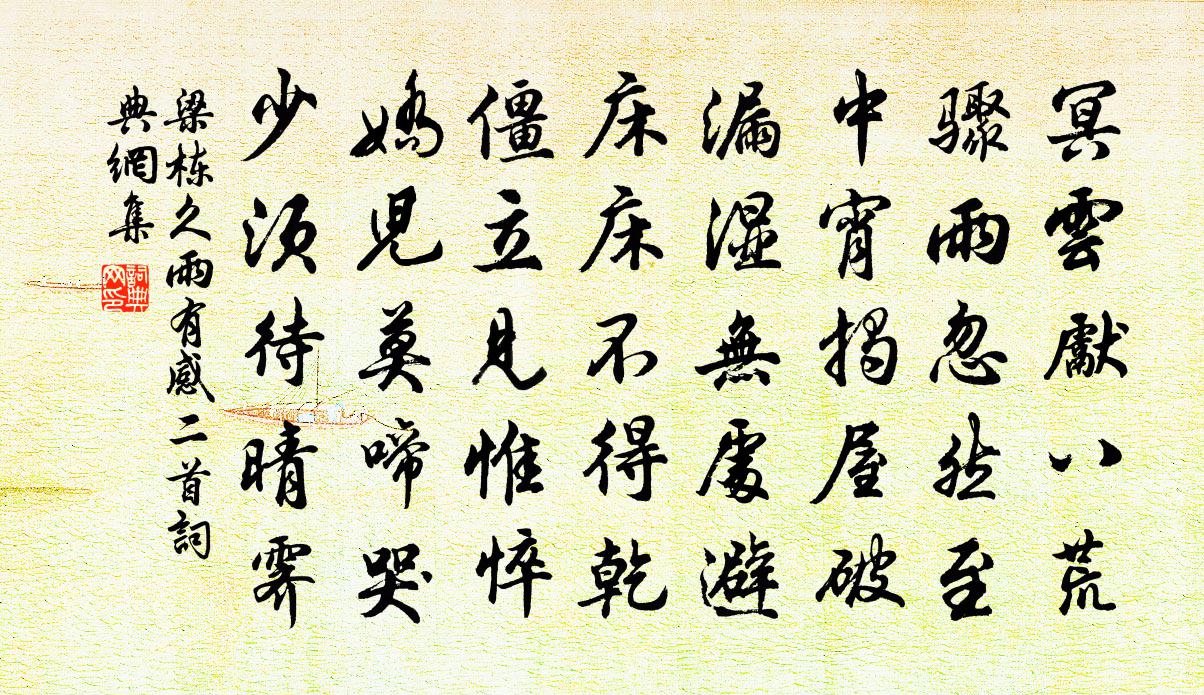 冥雲獻八荒
驟雨忽然至
中宵揭屋破
漏湿無處避
床床不得乾
僵立見惟悴
嬌児莫啼哭
少須待晴霁
梁栋久雨有感二首詞
典網集
詞典
网印